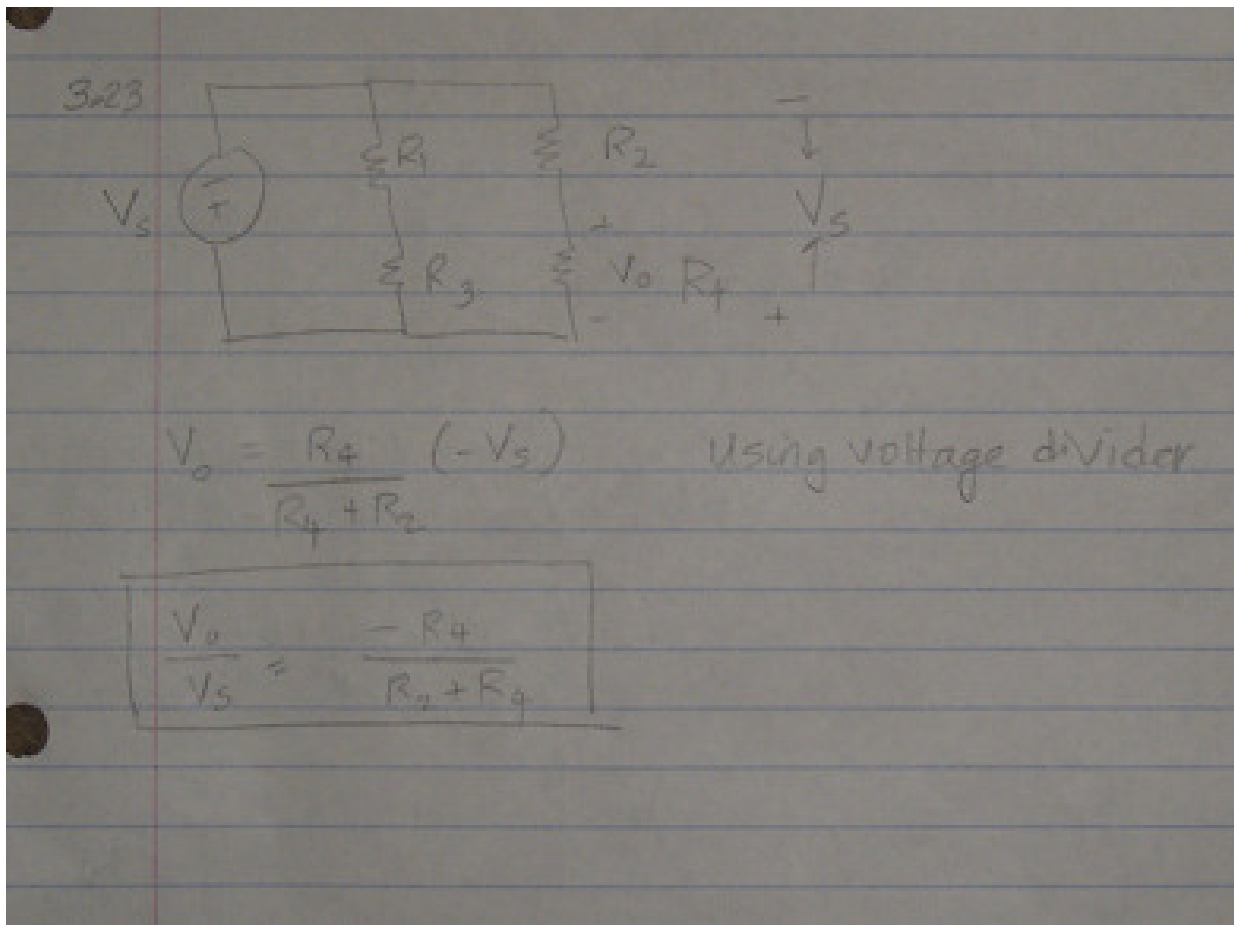 3.23
−
R₁ R₂
Vs − + Vs
+
R₃ V₀ R₄
− +
V₀ = R₄ / (R₄ + R₂) (−Vs) Using voltage divider
V₀ / Vs = −R₄ / (R₂ + R₄)